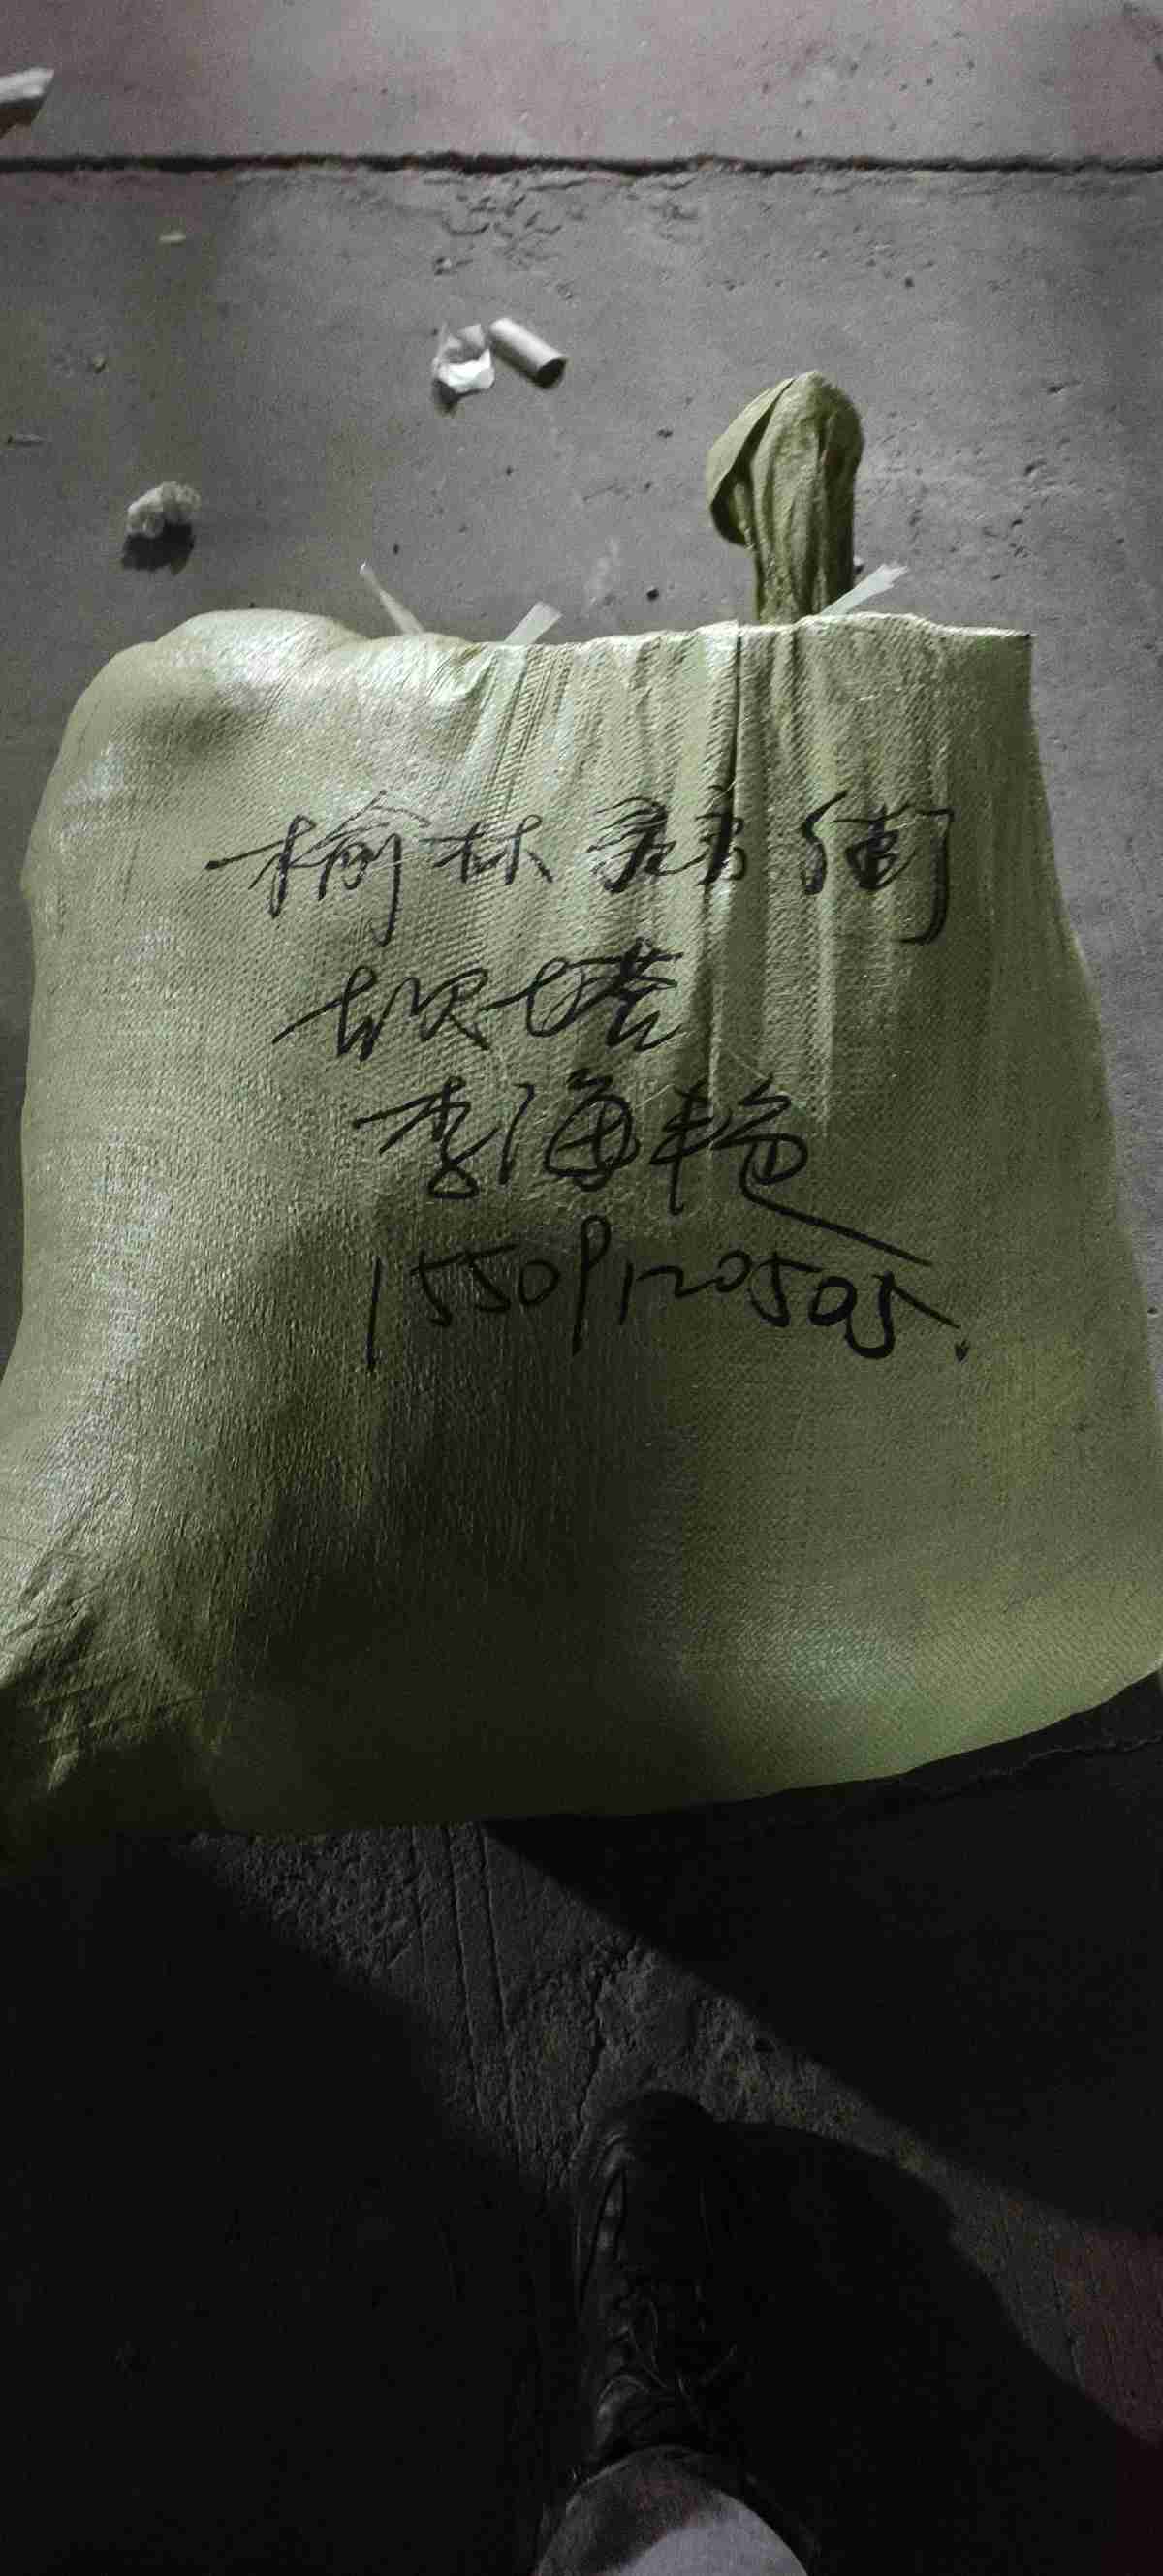 榆林 街
塔
李海艳
15509120505.